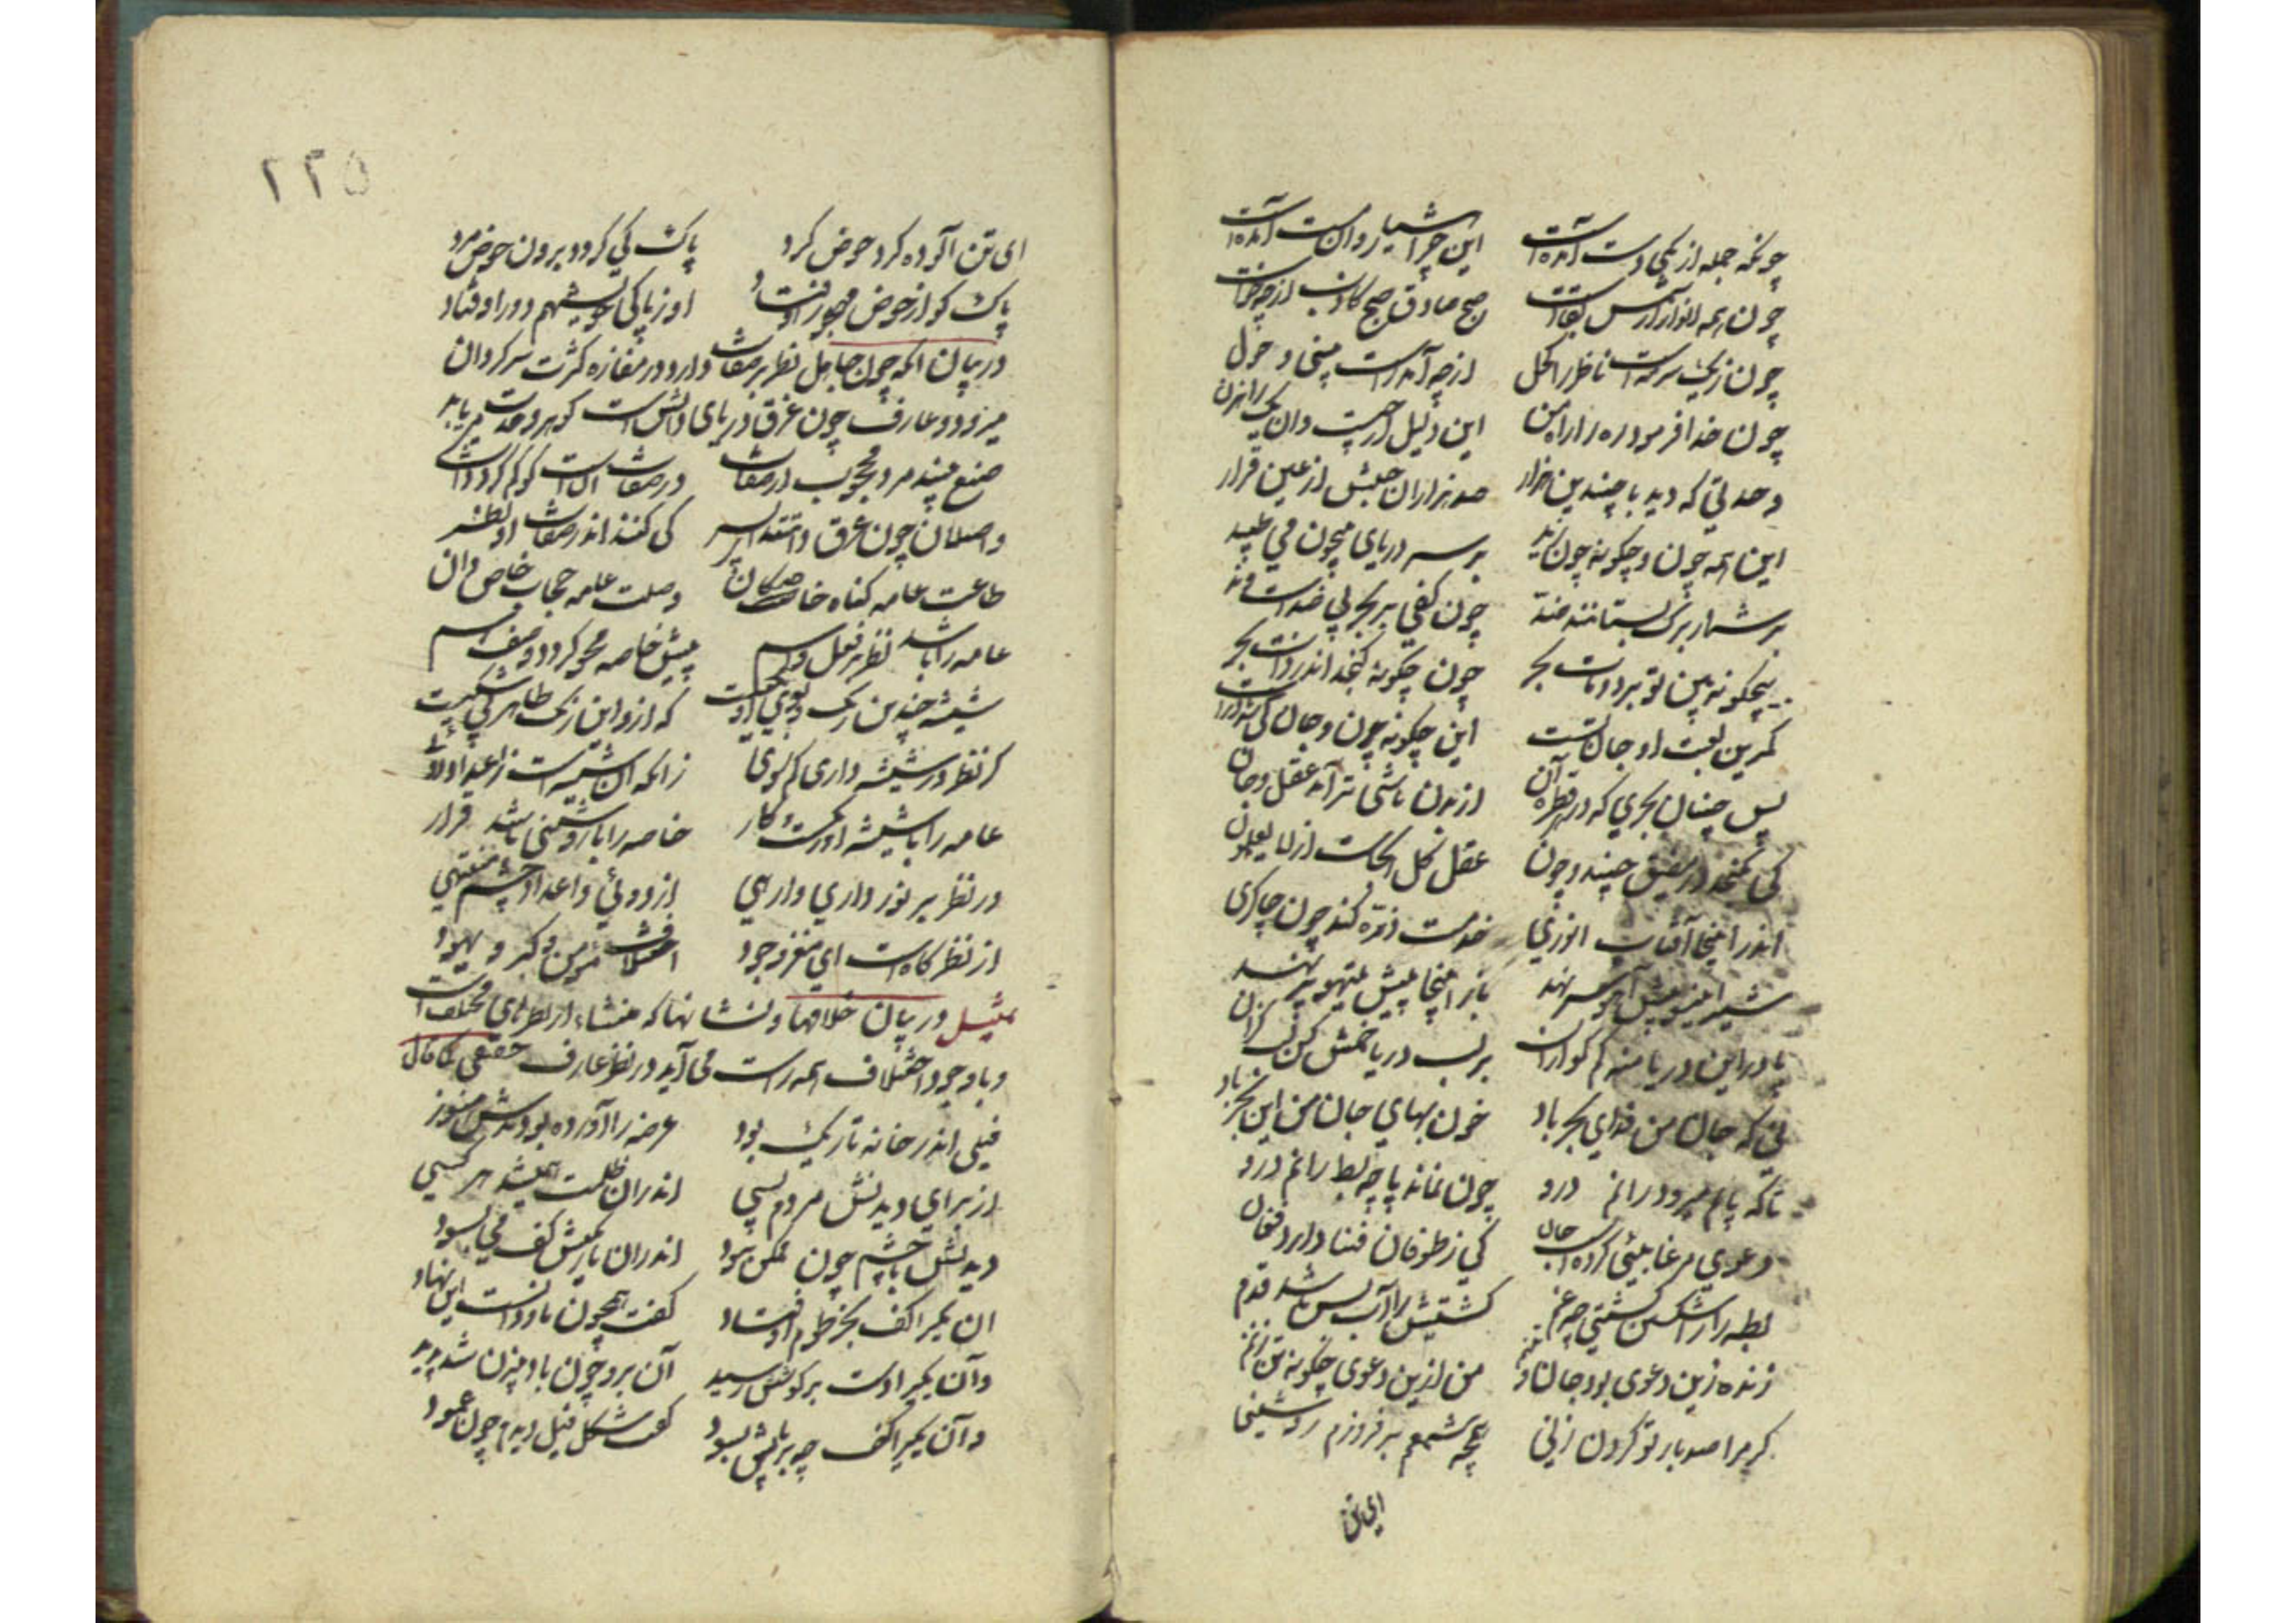 چونکه جمله از یکی دست آمدست این چرا هشیار و آن مست آمدست
چون همه انوار از شمس بقاست صبح صادق صبح کاذب از چه خاست
چون ز یک سرمه است ناظر را کحل از چه آمد راست بینی و حول
چون خدا فرمود ره را راه من این دلیل از چیست وان یک راهزن
وحدتی که دید با چندین هزار صد هزاران جنبش از عین قرار
این همه چون و چگونه چون زبد بر سر دریای بیچون می طپد
چون کفی بر بحر بی ضدست و ند
بیچگونه بین تو برد و مات بحر چون چگونه گنجد اندر ذات بحر
کمرین لعبت او جان تست این چگونه چون و جان کی شد درست
پس چنان بحری که در هر قطره آن از بدن ناشی تر آمد عقل و جان
کی بگنجد در مضیق چند و چون عقل کل آنجاست از لا یعلمون
اندر اینجا آفتاب انوری خدمت ذره کند چون چاکری
شیر اینسو پیش آهو سر نهد باز اینجا پیش تیهو پر نهد
پا در این دریا منه کم گو از آن بر لب دریا خمش کن لب گزان
لیک جان من فدای بحر باد خون بهای جان من این بحر باد
تا که پایم میرود رانم درو چون نماند پا چو بط رانم درو
دعوی مرغابیی کرده است جان کی ز طوفان فنا دارد فغان
بط را ز اشکستن کشتی چه غم کشتیش را آب بس باشد قدم
زنده زین دعوی بود جان و تنم من ازین دعوی چگونه تن زنم
گر مرا صد بار تو گردن زنی همچو شمعم بر فروزم روشنی
ای تن
۲۲۵
ای تن آلوده گرد حوض گرد پاک کی گردد برون حوض مرد
پاک کو از حوض مهجور اوفتاد او ز پاکی خویش هم دور اوفتاد
در بیان آنکه چون جاهل نظر بر صفات دارد در مفازه کثرت سرگردان
میرود و عارف چون غرق دریای ذاتست گوهر وحدت می یابد
صنع بیند مرد محجوب از صفات در صفات آنست کو گم کرد ذات
واصلان چون غرق ذاتند ای پسر کی کنند اندر صفات او نظر
طاعت عامه گناه خاصگان وصلت عامه حجاب خاص دان
عامه را باشد نظر بر فعل و اسم پیش خاصه محو گردد وصف و اسم
که ازو این رنگ ظاهر
گر نظر در شیشه داری گم شوی زانکه از شیشه است اعداد دوی
عامه را با شیشه او گشت کار خاصه را با روشنی باشد قرار
ور نظر بر نور داری وارهی از دوئی و اعداد جسم منتهی
از نظر گاه است ای مغز وجود اختلاف مومن و گبر و یهود
تمثیل در بیان خلافها و نشانها که منشاء از نظرهای مختلف است
و با وجود اختلاف همه راست می آید در نظر عارف حقیقی کما قال
فیلی اندر خانه تاریک بود عرضه را آورده بودندش هنود
از برای دیدنش مردم بسی اندران ظلمت همیشد هر کسی
دیدنش با چشم چون ممکن نبود اندران تاریکیش کف می بسود
آن یکی را کف بخرطوم اوفتاد گفت همچون ناودانست این نهاد
وآن یکی را دست بر گوشش رسید آن برو چون بادبیزن شد پدید
وآن یکی را کف چو بر پایش بسود گفت شکل فیل دیدم چون عمود